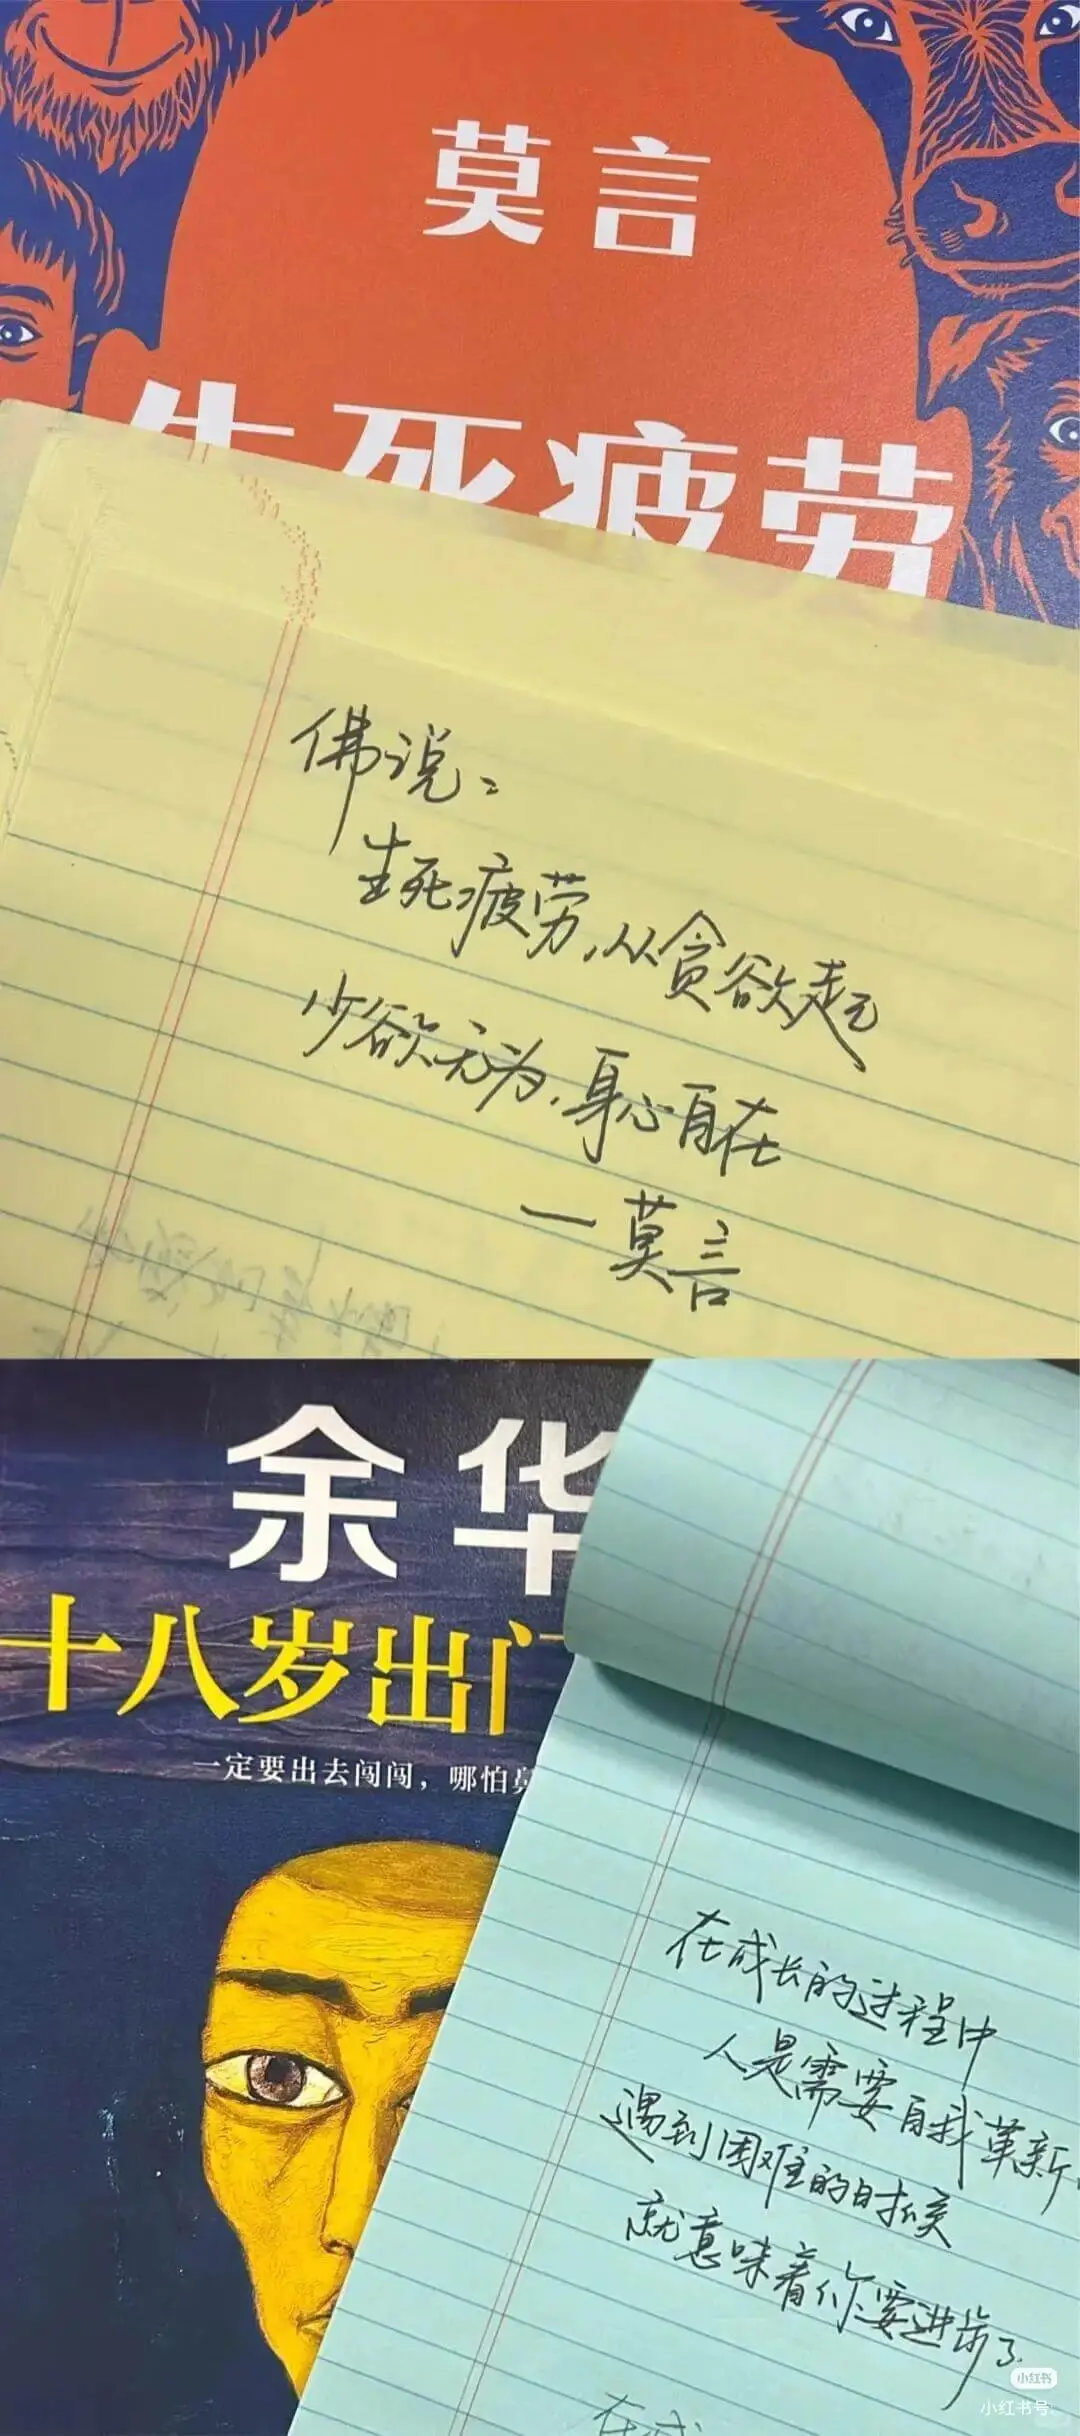 莫言
生死疲劳
佛说：
生死疲劳，从贪欲起
少欲无为，身心自在
—莫言
余华
十八岁出门
一定要出去闯闯，哪怕鼻
在成长的过程中
人是需要自我革新
遇到困难的时候
就意味着你要进步了
在成
小红书
小红书号: